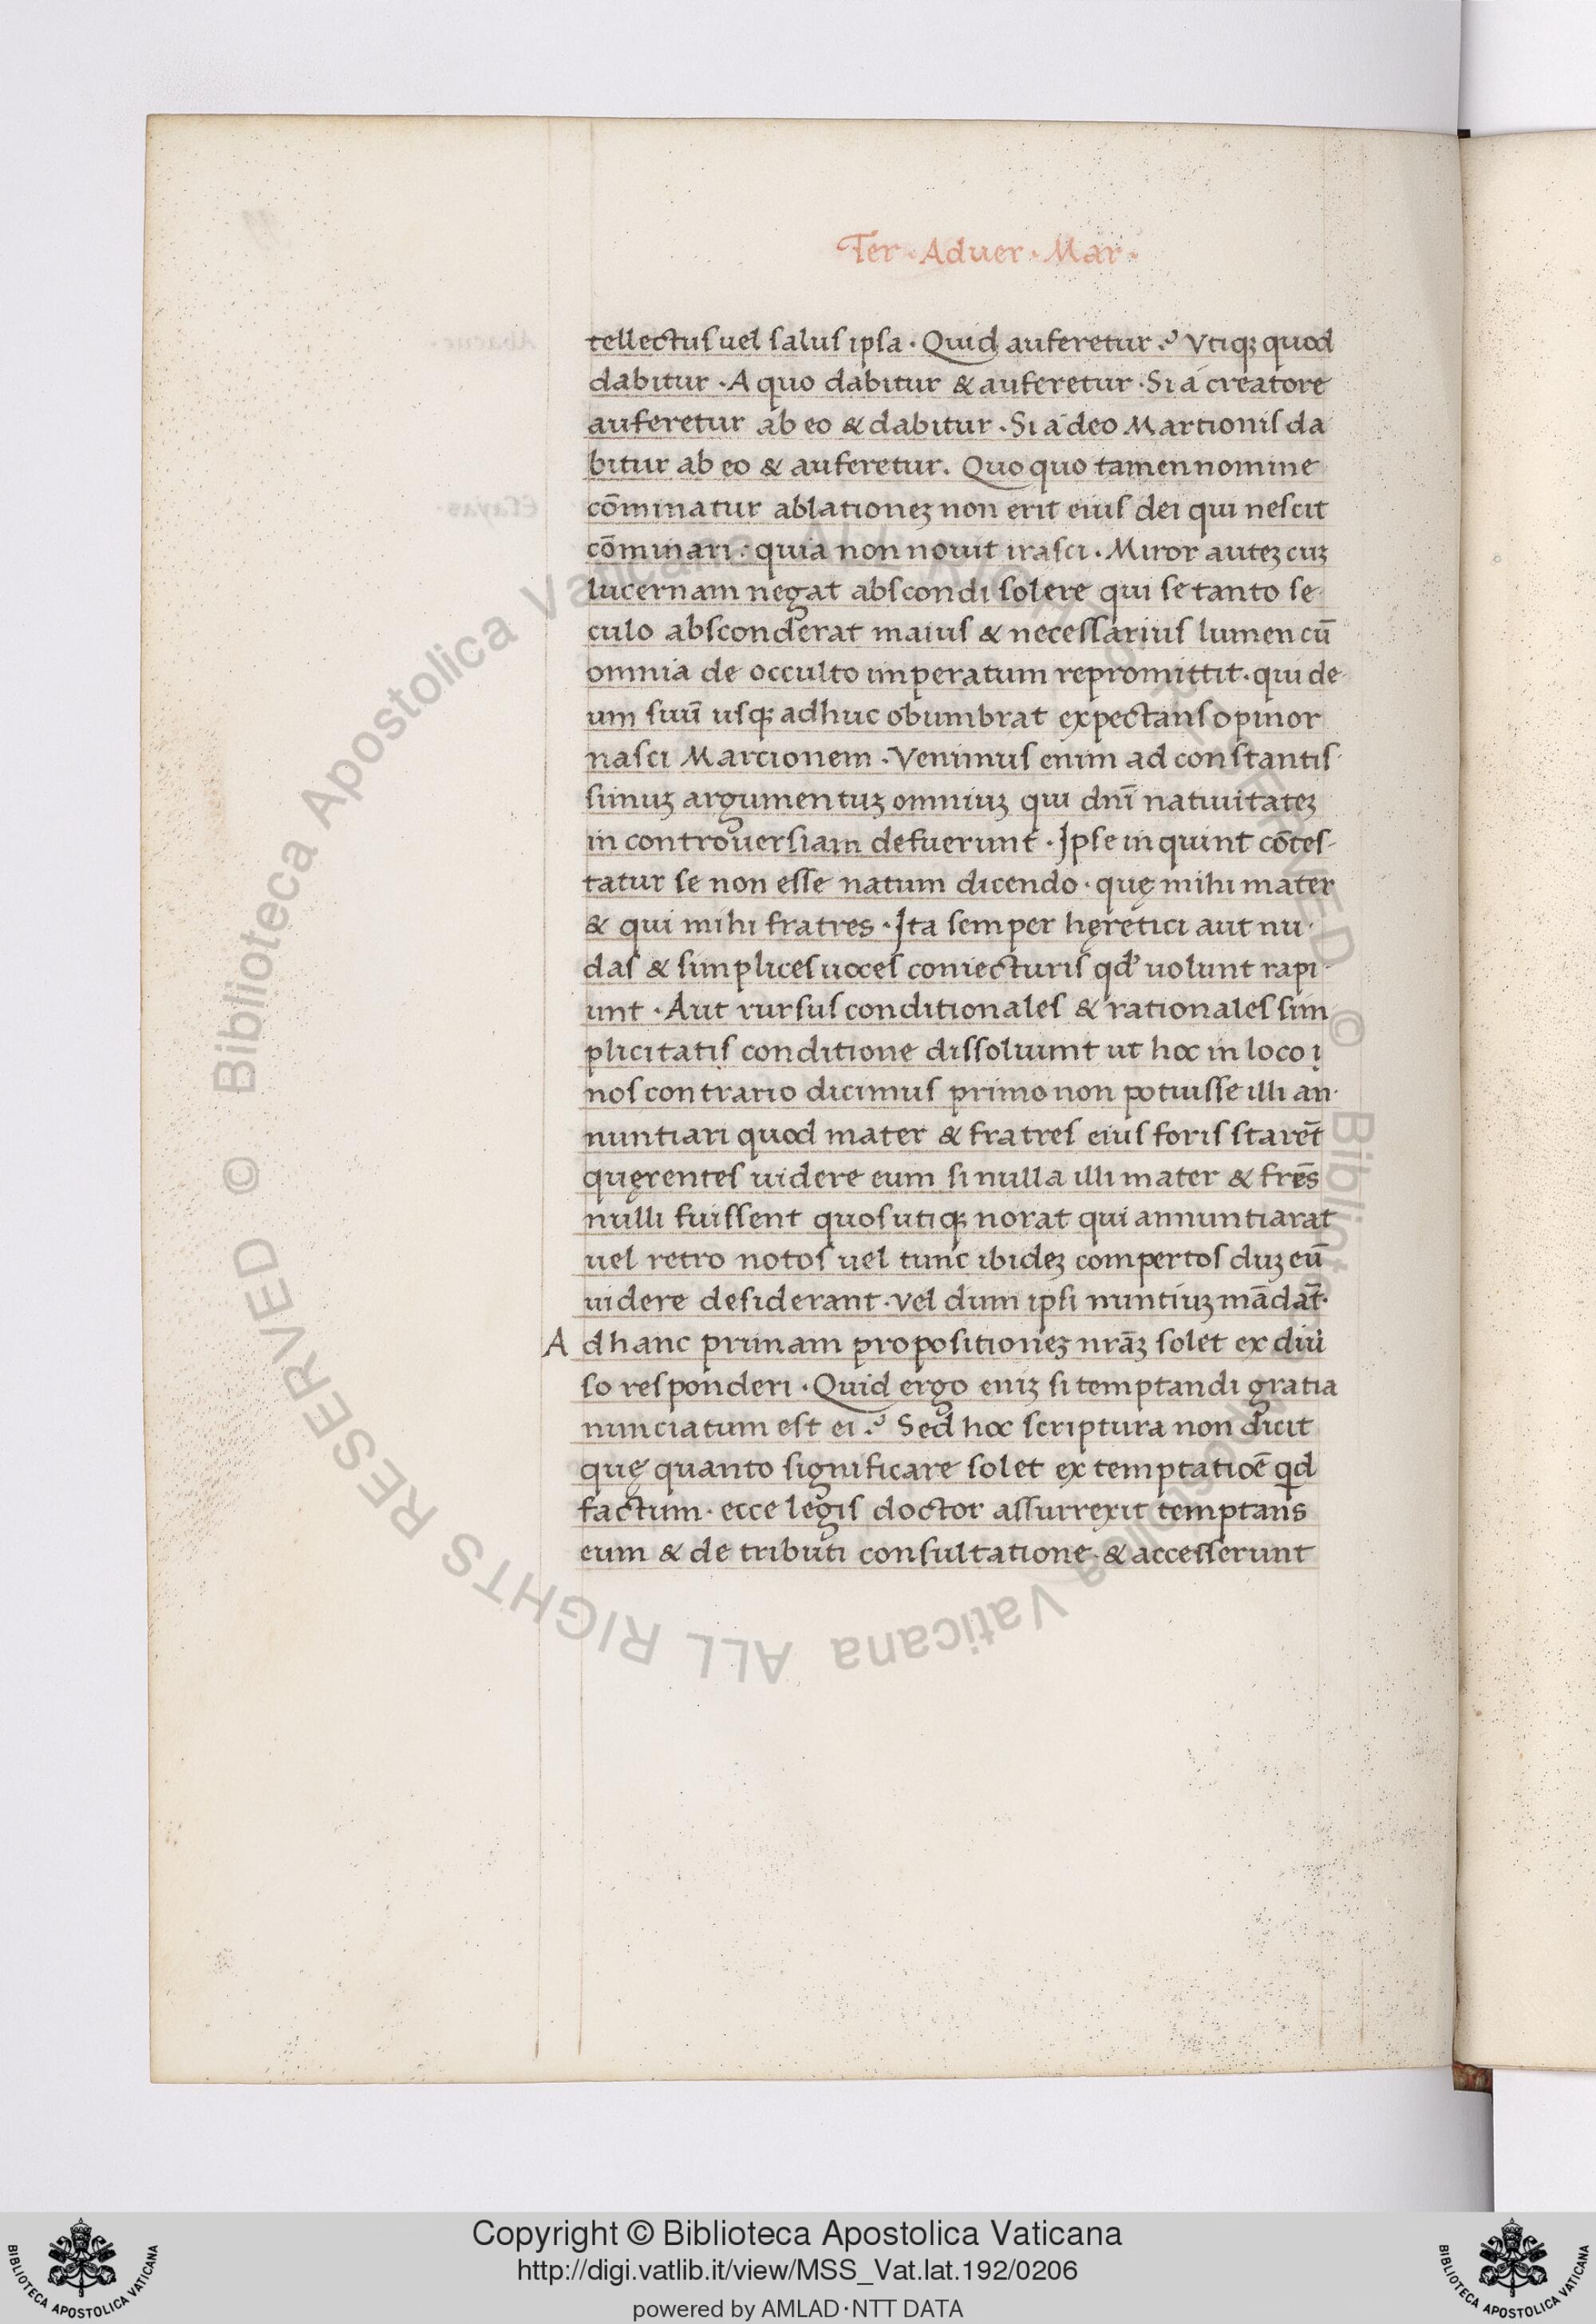 Ter · Aduer · Mar ·
tellectus uel salus ipsa · Quid auferetur ? Vtiqꝫ quod
dabitur · A quo dabitur & auferetur · Si a creatore
auferetur ab eo & dabitur · Si a deo Martionis da
bitur ab eo & auferetur. Quo quo tamen nomine
cōminatur ablationeꝫ non erit eius dei qui nescit
cōminari : quia non nouit irasci · Miror auteꝫ cuꝫ
lucernam negat abscondi solere qui se tanto se
culo absconderat maius & necessarius lumen cū
omnia de occulto imperatum repromittit · qui de-
um suū usqꝫ adhuc obumbrat expectans opinor
nasci Marcionem · Venimus enim ad constantis-
simuꝫ argumentuꝫ omniuꝫ qui dnī natiuitateꝫ
in controuersiam defuerunt · Ipse inquint cōtes-
tatur se non esse natum dicendo · quę mihi mater
& qui mihi fratres · Ita semper hęretici aut nu-
das & simplices uoces coniecturis qd' uolunt rapi-
unt · Aut rursus conditionales & rationales sim
plicitatis conditione dissoluunt ut hoc in loco i
nos contrario dicimus primo non potuisse illi an-
nuntiari quod mater & fratres eius foris starēt
quęrentes uidere eum si nulla illi mater & frēs
nulli fuissent quos utiqꝫ norat qui annuntiarat
uel retro notos uel tunc ibideꝫ compertos duꝫ eū
uidere desiderant · vel dum ipsi nuntiuꝫ mādāt·
A dhanc primam propositioneꝫ nrāꝫ solet ex diu
so responderi · Quid ergo eniꝫ si temptandi gratia
nunciatum est ei ? Sed hoc scriptura non dicit
quę quanto significare solet ex temptatiōe qd
factum · ecce legis doctor assurrexit temptans
eum & de tributi consultatione · & accesserunt
© Biblioteca Apostolica Vaticana ALL RIGHTS RESERVED © Biblioteca Apostolica Vaticana ALL RIGHTS RESERVED
Copyright © Biblioteca Apostolica Vaticana
http://digi.vatlib.it/view/MSS_Vat.lat.192/0206
powered by AMLAD·NTT DATA
BIBLIOTECA APOSTOLICA VATICANA
BIBLIOTECA APOSTOLICA VATICANA